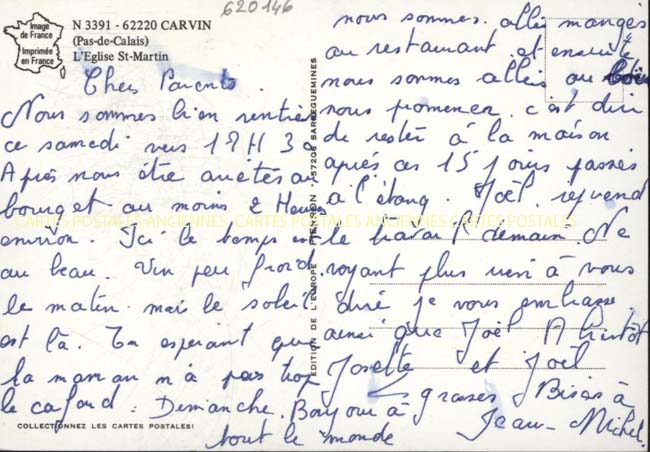 620146
Image
de France
Imprimée
en France
N 3391 - 62220 CARVIN
(Pas-de-Calais)
L'Eglise St-Martin
Chers Parents.
Nous sommes bien rentrés
ce samedi vers 18H 30
Après nous être arrêtés au
bourget au moins 2 Heures
environ. Ici le temps est
au beau. Un peu froid.
le matin. mais le soleil
est là. En espérant que
la maman n'a pas trop
le cafard. Dimanche.
nous sommes allés manger
au restaurant et ensuite
nous sommes allés au
nous promener. c'est dur
de rester à la maison
après ces 15 jours passés
à l'étang. Joël reprend
le travail demain Ne
voyant plus rien à vous
dire je vous embrasse
ainsi que Joël A bientôt
Josette et Joël
grosses Bises à
Jean-Michel
Bonjour à
tout le monde
EDITION DE L'EUROPE PIERRON - 57206 SARREGUEMINES
COLLECTIONNEZ LES CARTES POSTALES!
CARTES POSTALES ANCIENNES CARTES POSTALES ANCIENNES CARTES POSTALES